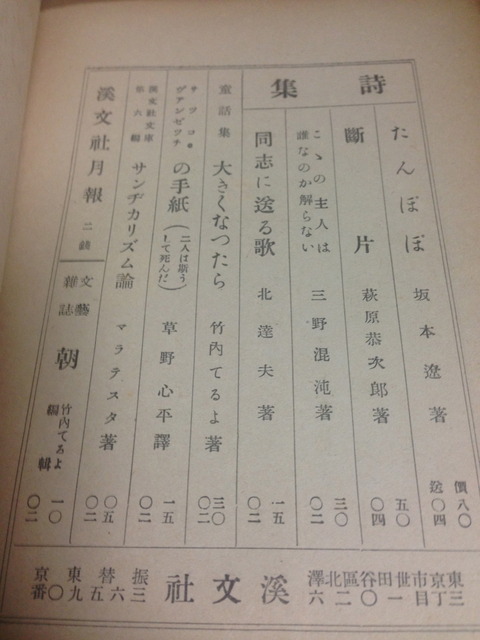 詩集
たんぽぽ 坂本遼著 價八〇 送〇四
斷片 萩原恭次郎著 五〇 〇四
こゝの主人は
誰なのか解らない 三野混沌著 三〇 〇二
同志に送る歌 北達夫著 一五 〇二
童話集 大きくなつたら 竹內てるよ著 三〇 〇二
サツコ・
ヴアンゼツチの手紙(二人は斯う
して死んだ) 草野心平譯 一五 〇二
溪文社文庫
第六輯 サンヂカリズム論 マラテスタ著 〇五 〇二
溪文社月報 二錢
文藝
雜誌 朝 竹內てるよ
編輯 一〇 〇二
東京市世田谷區北澤
三丁目一〇二六
溪文社
振替東京
三六五九〇番